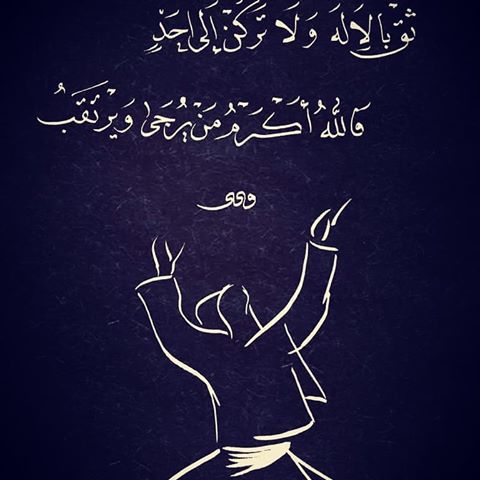 ثِقْ بِالإِلَهِ وَلَا تَرْكَنْ إِلَى أَحَدٍ
فَاللَّهُ أَكْرَمُ مَنْ يُرْجَى وَيُرْتَقَبُ